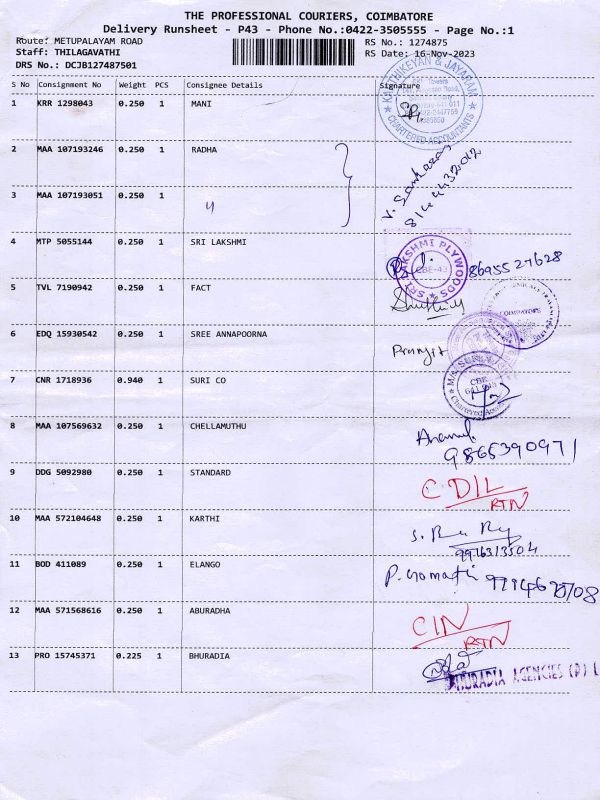 THE PROFESSIONAL COURIERS, COIMBATORE
Delivery Runsheet - P43 - Phone No.:0422-3505555 - Page No.:1
Route: METUPALAYAM ROAD
RS No.: 1274875
Staff: THILAGAVATHI
RS Date: 16-Nov-2023
DRS No.: DCJB127487501
S No Consignment No Weight PCS Consignee Details Signature
1 KRR 1298043 0.250 1 MANI
KARTHIKEYAN & JAYARAM
CHARTERED ACCOUNTANTS
2 MAA 107193246 0.250 1 RADHA
V. Sankaran
3 MAA 107193051 0.250 1 "
4 MTP 5055144 0.250 1 SRI LAKSHMI
SRI LAKSHMI PLYWOODS
CBE-43
8695527628
5 TVL 7190942 0.250 1 FACT
COIMBATORE
6 EDQ 15930542 0.250 1 SREE ANNAPOORNA
Pranjit
7 CNR 1718936 0.940 1 SURI CO
CBE
8 MAA 107569632 0.250 1 CHELLAMUTHU
9865390971
9 DDG 5092980 0.250 1 STANDARD
RTN
10 MAA 572104648 0.250 1 KARTHI
9976313504
11 BOD 411089 0.250 1 ELANGO
P. Gomathi
12 MAA 571568616 0.250 1 ABURADHA
RTN
13 PRO 15745371 0.225 1 BHURADIA
BHURADIA AGENCIES (P) L